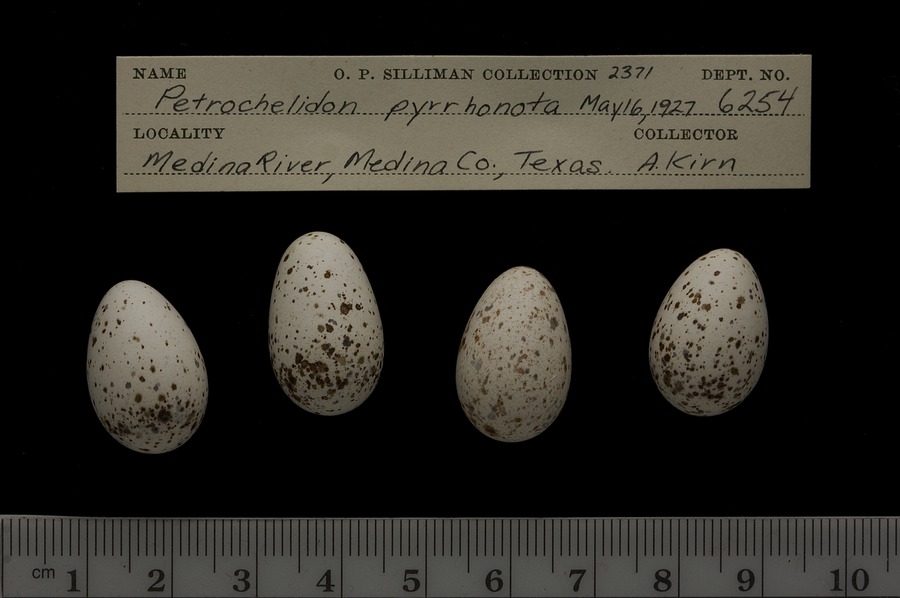 NAME O. P. SILLIMAN COLLECTION 2371 DEPT. NO.
Petrochelidon pyrrhonota May 16, 1927 6254
LOCALITY COLLECTOR
Medina River, Medina Co., Texas. A. Kirn
cm 1 2 3 4 5 6 7 8 9 10